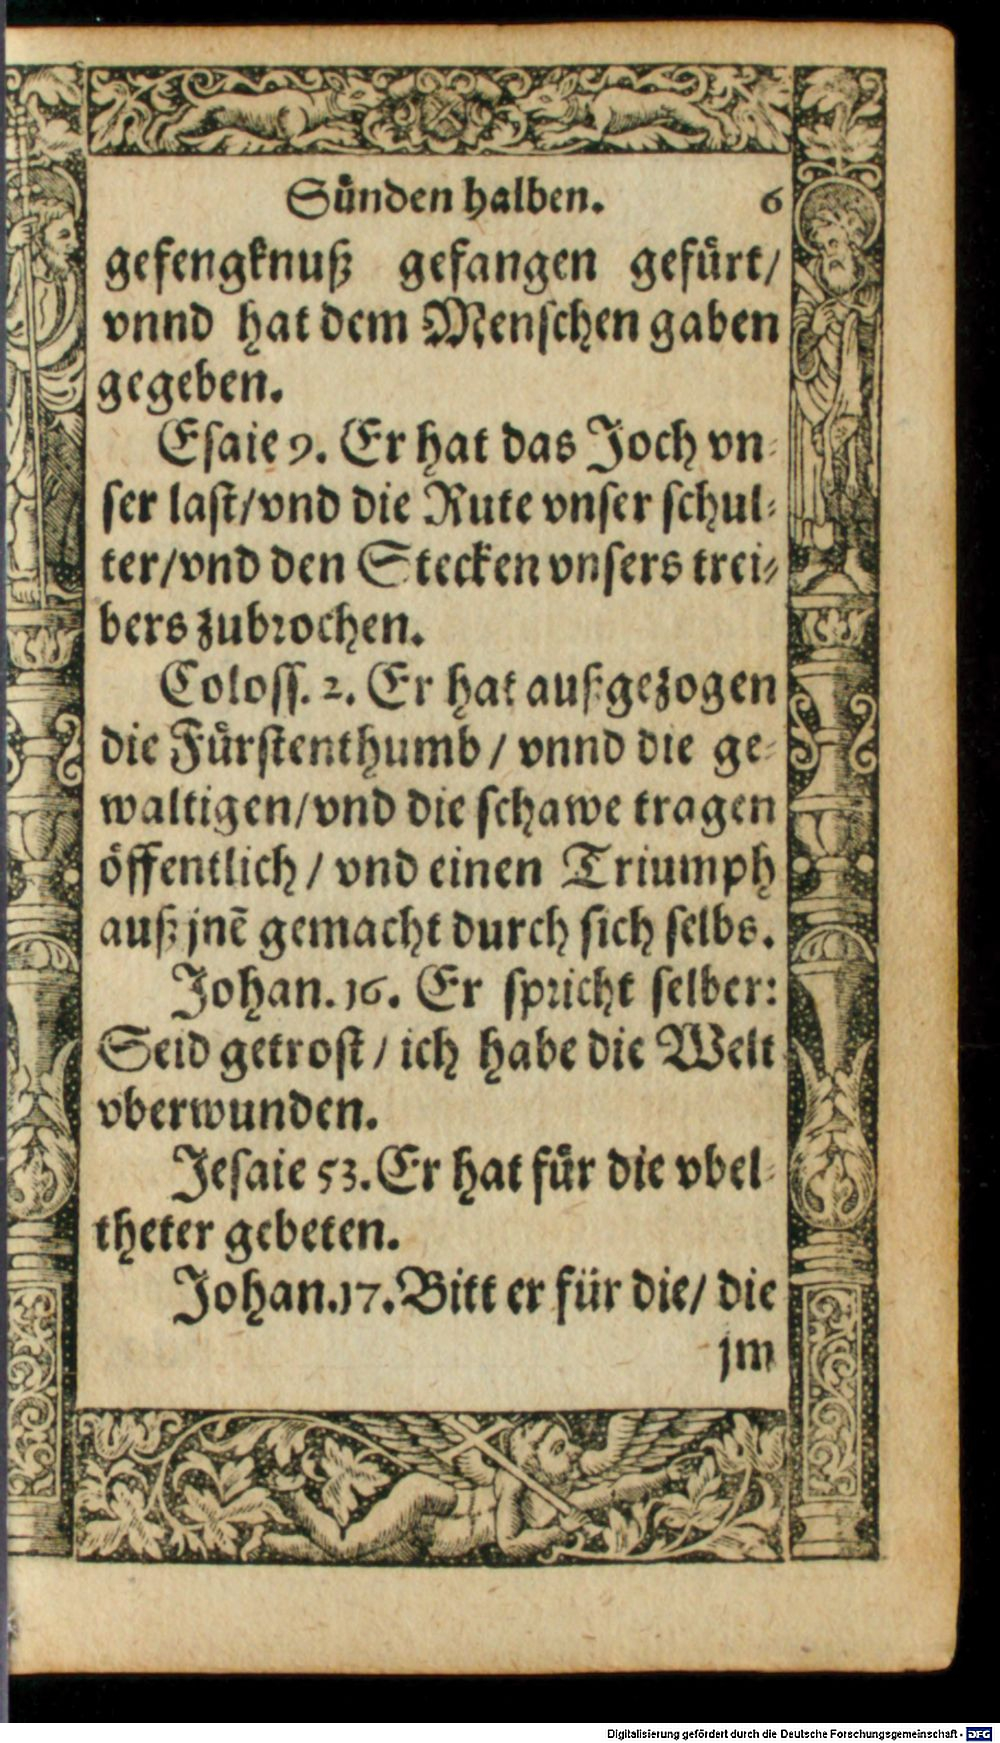 Sünden halben. 6
gefengknuß gefangen gefürt/
vnnd hat dem Menschen gaben
gegeben.
Esaie 9. Er hat das Joch vn-
ser last/vnd die Rute vnser schul-
ter/vnd den Stecken vnsers trei-
bers zubrochen.
Coloss. 2. Er hat außgezogen
die Fürstenthumb / vnnd die ge-
waltigen/vnd die schawe tragen
öffentlich / vnd einen Triumph
auß jnē gemacht durch sich selbs.
Johan. 16. Er spricht selber:
Seid getrost / ich habe die Welt
vberwunden.
Jesaie 53. Er hat für die vbel-
theter gebeten.
Johan. 17. Bitt er für die/ die
jm
Digitalisierung gefördert durch die Deutsche Forschungsgemeinschaft - DFG